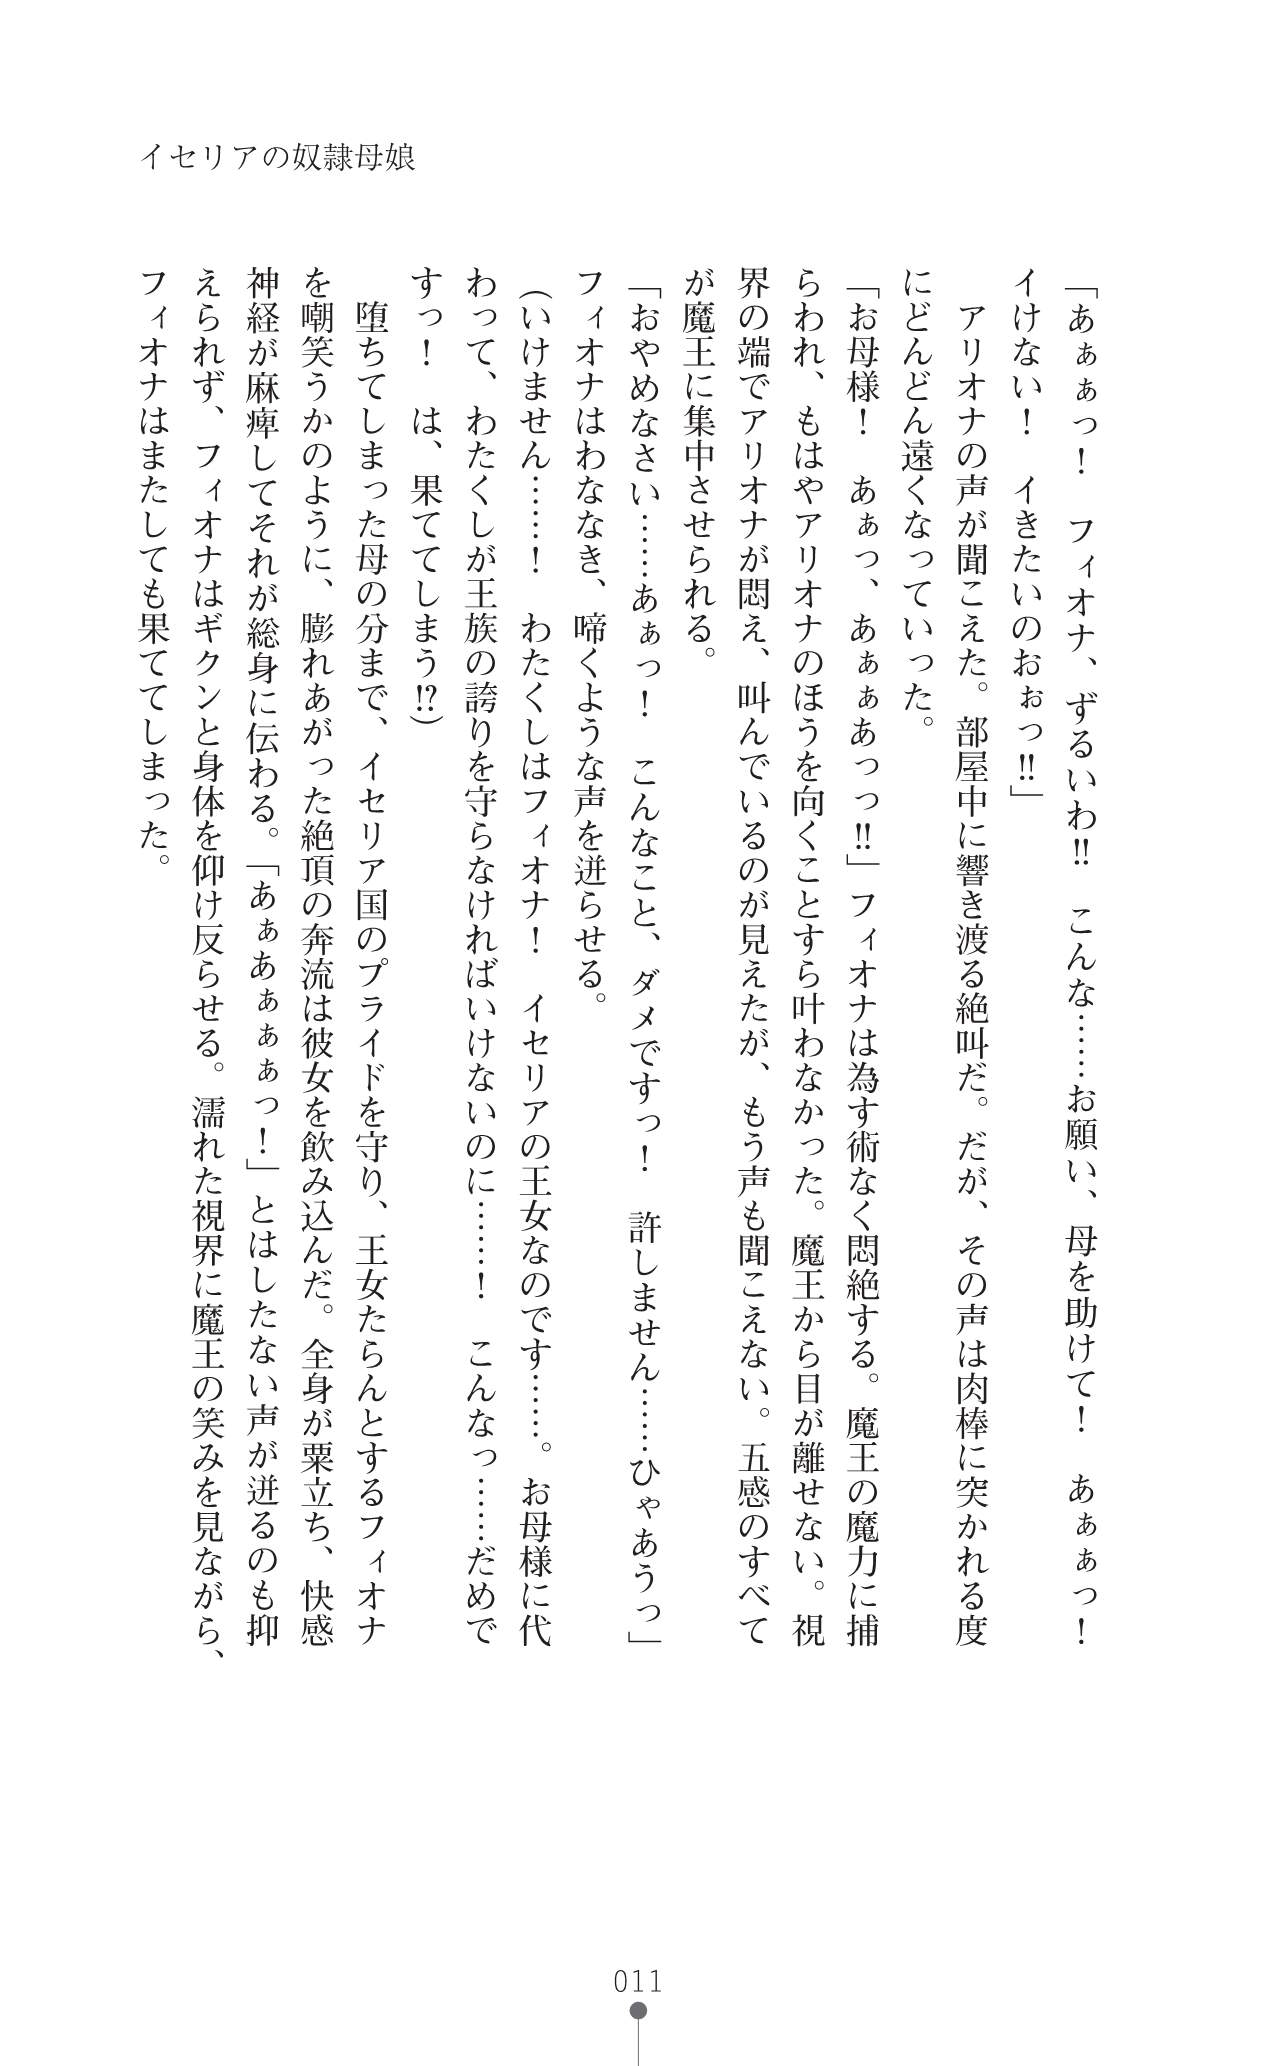 イセリアの奴隷母娘
「あぁぁっ！　フィオナ、ずるいわ!!　こんな……お願い、母を助けて！　あぁぁっ！
イけない！　イきたいのおぉっ!!」
　アリオナの声が聞こえた。部屋中に響き渡る絶叫だ。だが、その声は肉棒に突かれる度
にどんどん遠くなっていった。
「お母様！　あぁっ、あぁぁあっっ!!」フィオナは為す術なく悶絶する。魔王の魔力に捕
らわれ、もはやアリオナのほうを向くことすら叶わなかった。魔王から目が離せない。視
界の端でアリオナが悶え、叫んでいるのが見えたが、もう声も聞こえない。五感のすべて
が魔王に集中させられる。
「おやめなさい……あぁっ！　こんなこと、ダメですっ！　許しません……ひゃあうっ」
フィオナはわななき、啼くような声を迸らせる。
（いけません……！　わたくしはフィオナ！　イセリアの王女なのです……。お母様に代
わって、わたくしが王族の誇りを守らなければいけないのに……！　こんなっ……だめで
すっ！　は、果ててしまう!?）
　堕ちてしまった母の分まで、イセリア国のプライドを守り、王女たらんとするフィオナ
を嘲笑うかのように、膨れあがった絶頂の奔流は彼女を飲み込んだ。全身が粟立ち、快感
神経が麻痺してそれが総身に伝わる。「あぁあぁぁぁっ！」とはしたない声が迸るのも抑
えられず、フィオナはギクンと身体を仰け反らせる。濡れた視界に魔王の笑みを見ながら、
フィオナはまたしても果ててしまった。
011